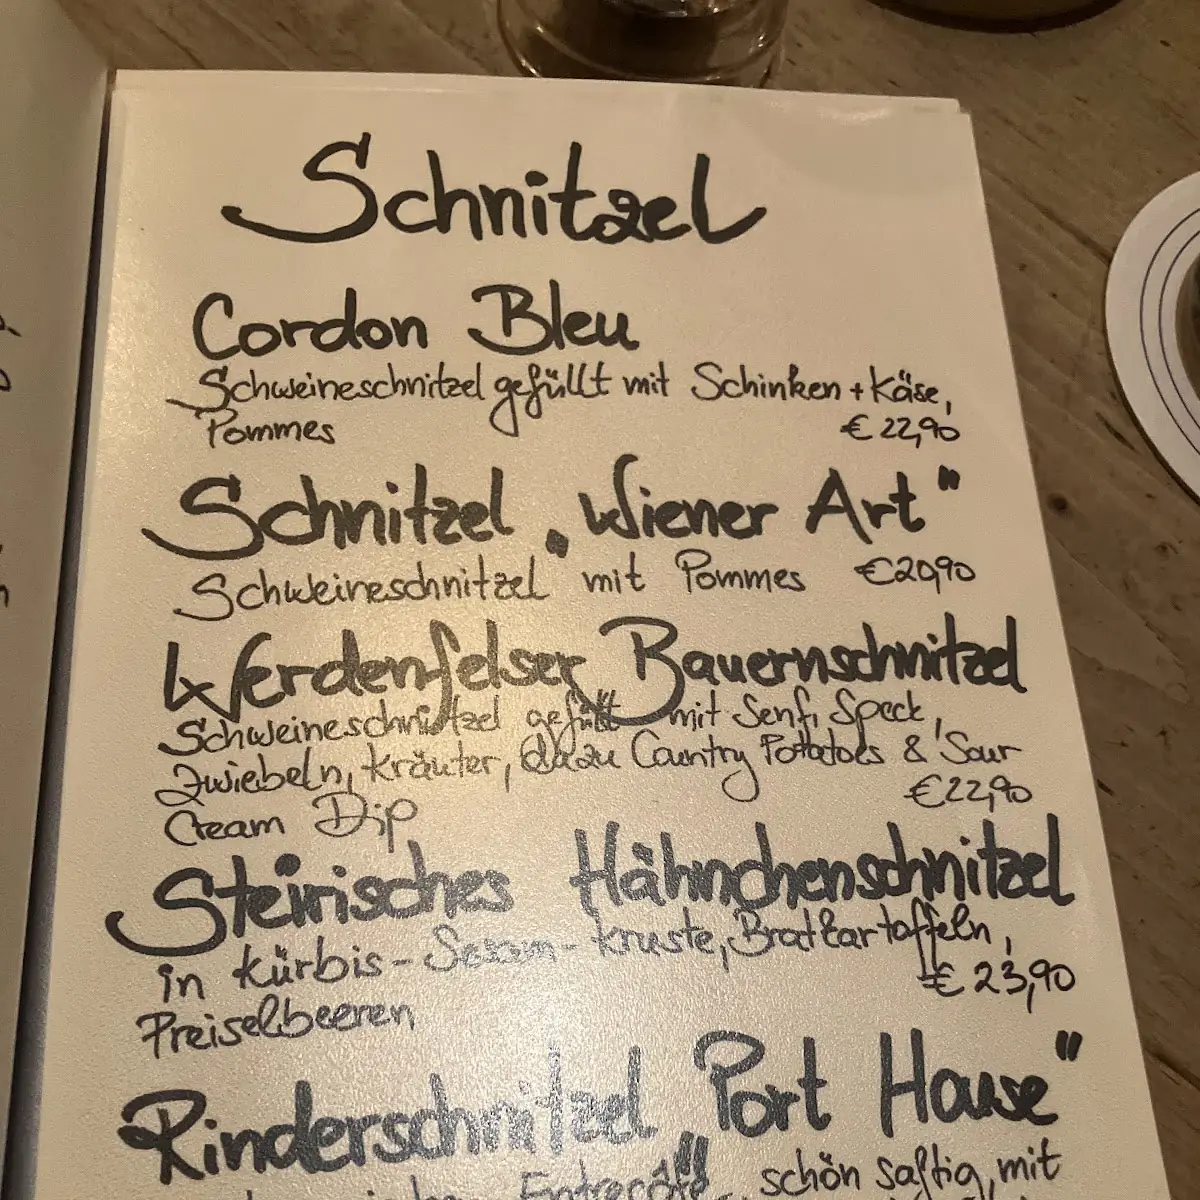 Schnitzel
Cordon Bleu
Schweineschnitzel gefüllt mit Schinken + Käse,
Pommes € 22,90
Schnitzel „Wiener Art"
Schweineschnitzel mit Pommes €20,90
Werdenfelser Bauernschnitzel
Schweineschnitzel gefüllt mit Senf, Speck,
Zwiebeln, Kräuter, dazu Country Potatoes & Sour
Cream Dip €22,90
Steirisches Hähnchenschnitzel
in Kürbis-Sesam-kruste, Bratkartoffeln,
Preiselbeeren € 23,90
Rinderschnitzel „Port House"
schön saftig, mit